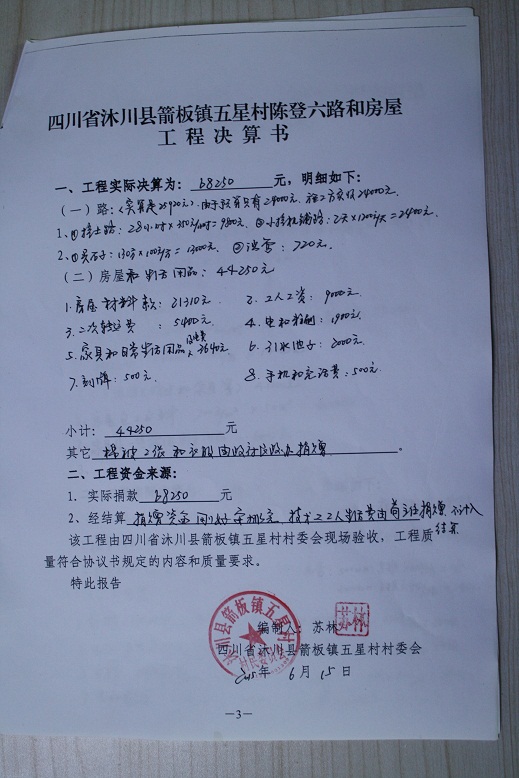 四川省沐川县箭板镇五星村陈登六路和房屋
工程决算书
一、工程实际决算为：68250元，明细如下：
（一）路：（实算是25920元），由于预算只有24000元，施工方实收24000元.
1、①挖土路：28小时×350元/时=9800元. ②小挖机铺路：2天×1200元/天=2400元.
2、①炭石子：130方×100元/方=13000元. ②运营：720元.
（二）房屋和生活用品：44250元
1.房屋材料款：21310元 2.工人工资：9000元
3.二次转运费：5400元 4.电和粉刷：1900元
5.家具和日常生活用品及运费：3640元 6.引水池子：2000元
7.刻牌：500元. 8.手机和充话费：500元.
小计：44250元
其它 棉被2张和衣服由政府民政办捐赠。
二、工程资金来源：
1. 实际捐款 68250 元
2、经结算 捐赠资金刚好，技术工工人生活费由苟主任捐赠 不计入结算
该工程由四川省沐川县箭板镇五星村村委会现场验收，工程质
量符合协议书规定的内容和质量要求。
特此报告
沐川县箭板镇五星村
村民委员会
编制人：苏林 苏林
四川省沐川县箭板镇五星村村委会
2015年6月15日
—3—